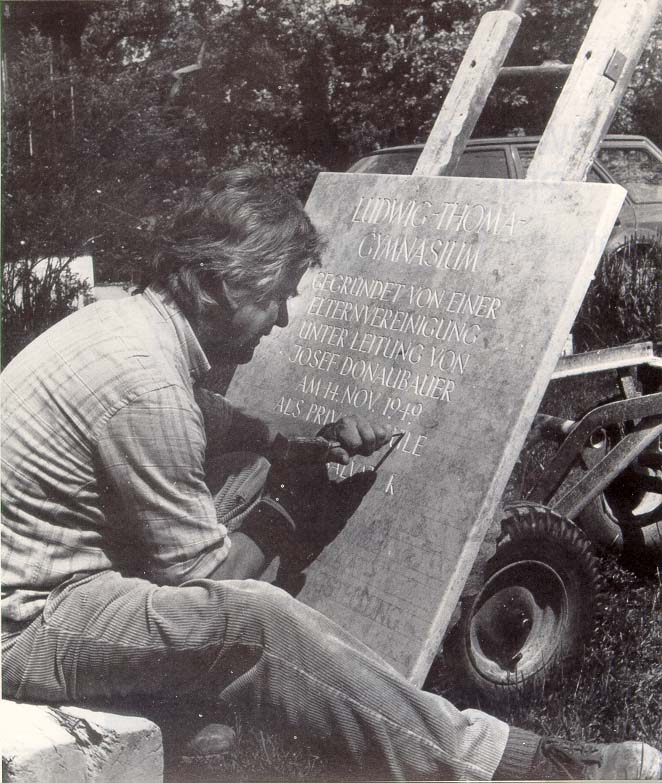 LUDWIG-THOMA-
GYMNASIUM
GEGRÜNDET VON EINER
ELTERNVEREINIGUNG
UNTER LEITUNG VON
JOSEF DONAUBAUER
AM 14. NOV. 1949
ALS